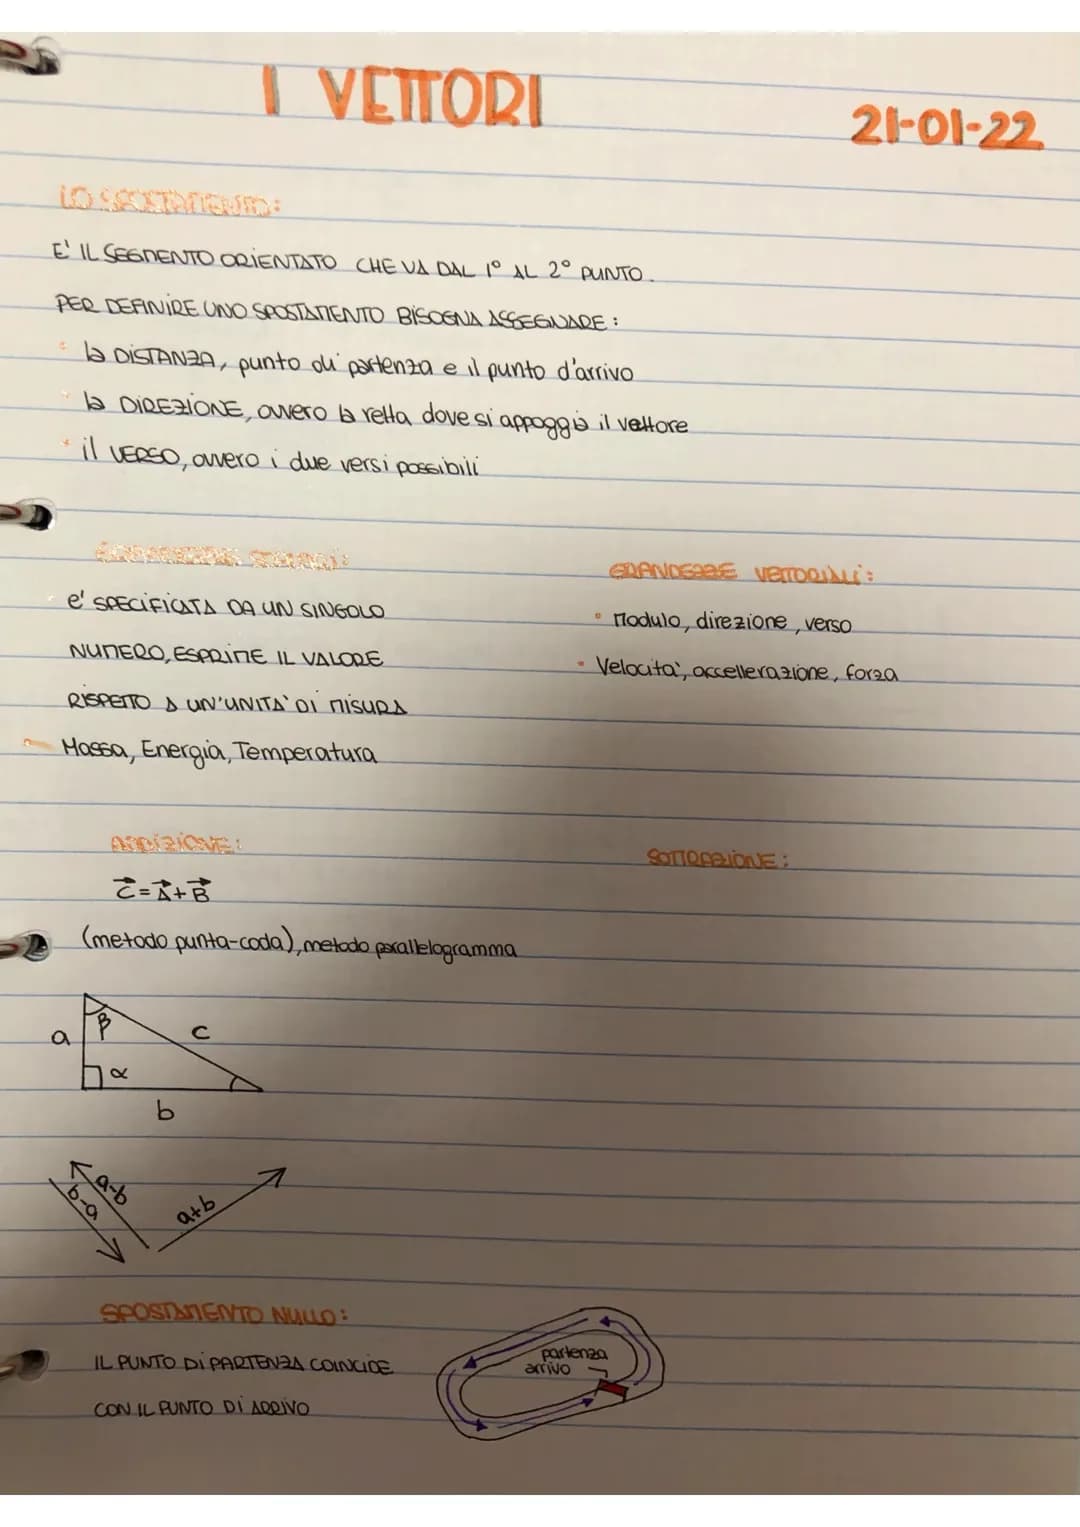 I VETTORI
21-01-22
LO SPOSTAMENTO:
E' IL SEGMENTO ORIENTATO CHE VA DAL 1° AL 2° PUNTO.
PER DEFINIRE UNO SPOSTAMENTO BISOGNA ASSEGNARE:
la DISTANZA, punto di partenza e il punto d'arrivo
la DIREZIONE, ovvero la retta dove si appoggia il vettore
il VERSO, ovvero i due versi possibili
SCALARI:
e' SPECIFICATA DA UN SINGOLO
NUMERO, ESPRIME IL VALORE
RISPETTO A UN'UNITA' DI MISURA
Massa, Energia, Temperatura
GRANDEZZE VETTORIALI:
• Modulo, direzione, verso
• Velocita', accellerazione, forza
ADDIZIONE:
C⃗ = A⃗ + B⃗
(metodo punta-coda), metodo parallelogramma
SOTTRAZIONE:
a
β
c
α
b
a-b
b-a
a+b
SPOSTAMENTO NULLO:
IL PUNTO DI PARTENZA COINCIDE
CON IL PUNTO DI ARRIVO
partenza
arrivo